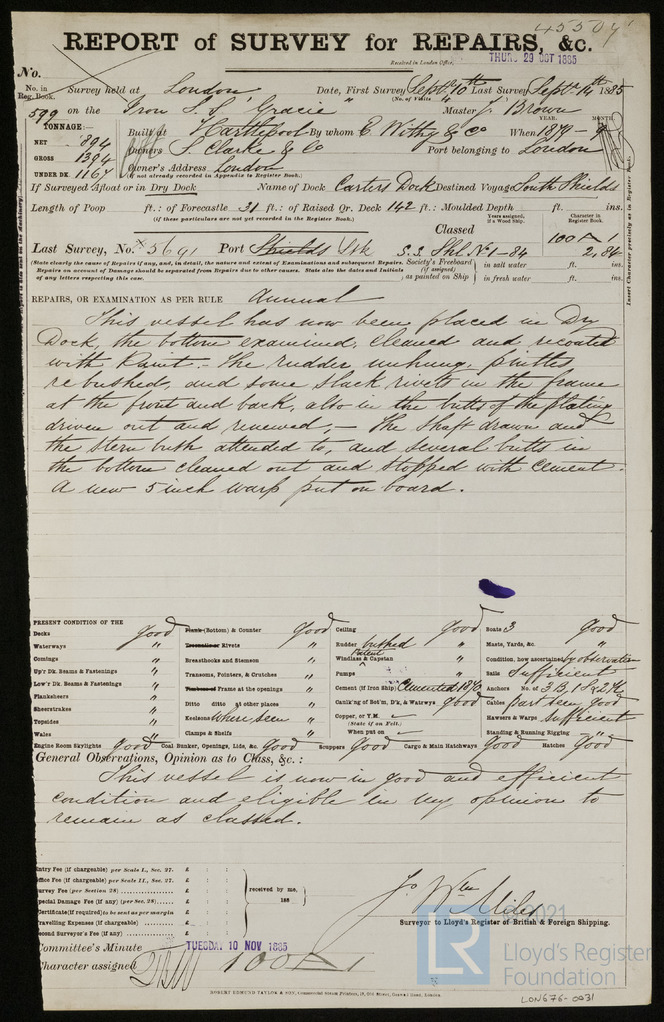 45507
REPORT of SURVEY for REPAIRS, &c.
Received in London Office, THURS 29 OCT 1885
No.
No. in Reg. Book. Survey held at London Date, First Survey Septr 10th Last Survey Septr 14th 1885
(No. of Visits
599 on the Iron S.S "Gracie" Master J. Brown
TONNAGE:— Built at Hartlepool By whom E. Withy & Co When 1879 - 9
YEAR. MONTH.
NET 894 Owners S. Clarke & Co Port belonging to London
GROSS 1394
UNDER DK. 1167 Owner's Address London
(if not already recorded in Appendix to Register Book.)
If Surveyed Afloat or in Dry Dock Name of Dock Carters Dock Destined Voyage South Shields
Length of Poop ft.: of Forecastle 31 ft.: of Raised Qr. Deck 142 ft.: Moulded Depth ft. ins.
(if these particulars are not yet recorded in the Register Book.)
Classed
Years assigned, if a Wood Ship. Character in Register Book.
100 A
Last Survey, No. 5691 Port Shields S.S. Shl No 1 - 84 2,84
(State clearly the cause of Repairs if any, and, in detail, the nature and extent of Examinations and subsequent Repairs.
Repairs on account of Damage should be separated from Repairs due to other causes. State also the dates and Initials
of any letters respecting this case.
Society's Freeboard (if assigned) as painted on Ship
in salt water ft. ins.
in fresh water ft. ins.
Insert Character precisely as in Register Book.
REPAIRS, OR EXAMINATION AS PER RULE Annual
This vessel has now been placed in Dry
Dock, the bottom examined, cleaned and recoated
with Paint. The rudder unhung, pintles
rebushed, and some slack rivets in the frame
at the front and back, also in the butts of the plating
driven out and renewed. The shaft drawn and
the stern bush attended to, and several butts in
the bottom cleaned out and stopped with cement.
A new 5 inch warp put on board.
PRESENT CONDITION OF THE
Decks good
Waterways "
Comings "
Up'r Dk. Beams & Fastenings "
Low'r Dk. Beams & Fastenings "
Planksheers "
Sheerstrakes "
Topsides "
Wales "
Engine Room Skylights good
Plank (Bottom) & Counter good
Treenails or Rivets "
Breasthooks and Stemson "
Transoms, Pointers, & Crutches "
Timbers of Frame at the openings "
Ditto ditto at other places "
Keelsons where seen "
Clamps & Shelfs "
Coal Bunker, Openings, Lids, &c. good
Ceiling good
Rudder bushed "
Patent
Windlass & Capstan "
Pumps "
Cement (if Iron Ship) Cemented
Caulking of Bot'm, Dk., & Watrwys good
Copper, or Y.M.
(State if on Felt.)
When put on
Scuppers good Cargo & Main Hatchways good
Boats 3 good
Masts, Yards, &c. "
Condition, how ascertained by observation
Sails Sufficient
Anchors No. of 3 B, 1 S, & 2 K
Cables part seen good
Hawsers & Warps Sufficient
Standing & Running Rigging "
Hatches good
General Observations, Opinion as to Class, &c.:
This vessel is now in good and efficient
condition and eligible in my opinion to
remain as classed.
Entry Fee (if chargeable) per Scale I., Sec. 27. £ : :
Office Fee (if chargeable) per Scale II., Sec. 27. £ : :
Survey Fee (per Section 28) £ : :
Special Damage Fee (if any) (per Sec. 28) £ : :
Certificate (if required) to be sent as per margin
Travelling Expenses (if chargeable) £ : :
Second Surveyor's Fee (if any) £ : :
received by me,
188
Jo Wm Miles
Surveyor to Lloyd's Register of British & Foreign Shipping.
Committee's Minute TUESDAY 10 NOV 1885
Character assigned 100 A 1
ROBERT EDMUND TAYLOR & SON, Commercial Steam Printers, 19, Old Street, Goswell Road, London.
LR
2021
Lloyd's Register
Foundation
LON676-0031